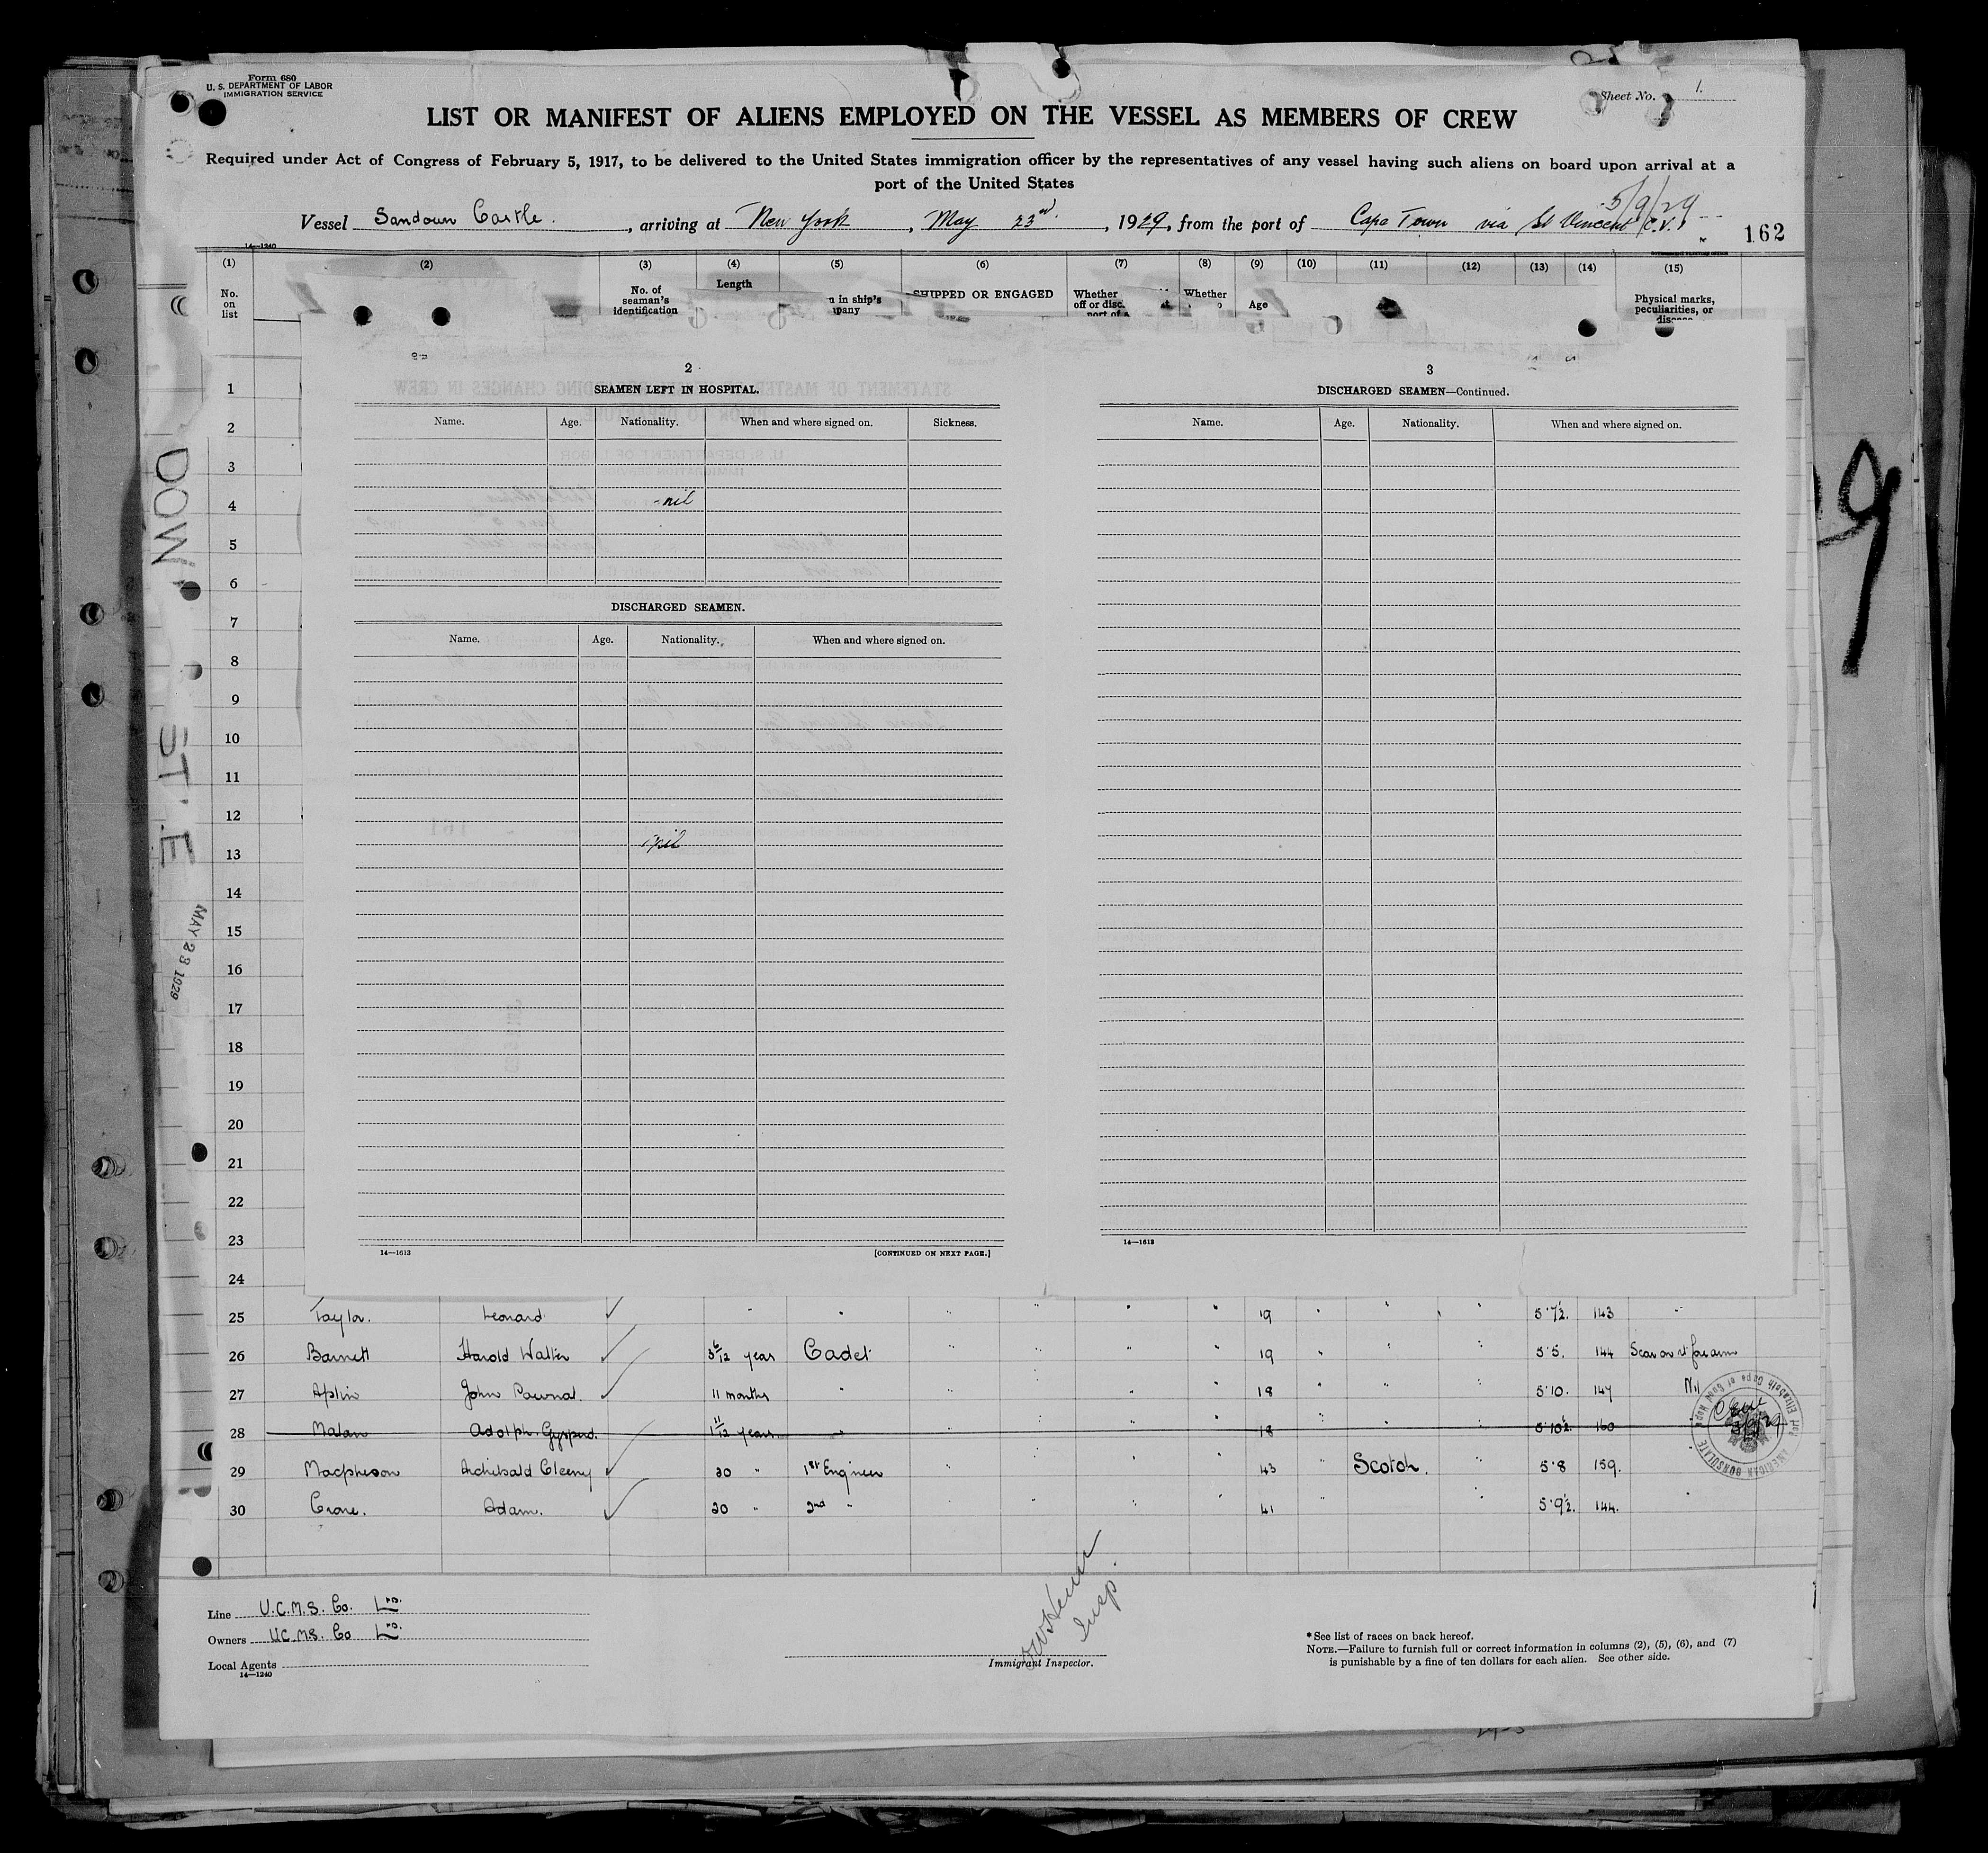 Form 680
U. S. DEPARTMENT OF LABOR
IMMIGRATION SERVICE
Sheet No. 1.
LIST OR MANIFEST OF ALIENS EMPLOYED ON THE VESSEL AS MEMBERS OF CREW
Required under Act of Congress of February 5, 1917, to be delivered to the United States immigration officer by the representatives of any vessel having such aliens on board upon arrival at a
port of the United States
5/9/29
Vessel Sandown Castle. , arriving at New York , May 23rd. , 1929, from the port of Cape Town via St Vincent C.V.
162
14—1240
(1) (2) (3) (4) (5) (6) (7) (8) (9) (10) (11) (12) (13) (14) (15)
No. on list
No. of seaman's identification
Length
SHIPPED OR ENGAGED
Whether
Whether
Age
Physical marks, peculiarities, or
2
SEAMEN LEFT IN HOSPITAL.
Name. Age. Nationality. When and where signed on. Sickness.
nil
DISCHARGED SEAMEN.
Name. Age. Nationality. When and where signed on.
nil
14—1613
[CONTINUED ON NEXT PAGE.]
3
DISCHARGED SEAMEN—Continued.
Name. Age. Nationality. When and where signed on.
14—1613
1
2
3
4
5
6
7
8
9
10
11
12
13
14
15
16
17
18
19
20
21
22
23
24
25 Taylor. Leonard " " " " " " 19 " " " 5'7½. 143 "
26 Barnett Harold Walter 3 6/12 year Cadet " " " " 19 " " " 5'5. 144 Scar on rt forearm
27 Aplin John Pownal 11 months " " " " " 18 " " " 5'10. 147 Nil
28 Malan Adolph 1 11/12 years " " " " " 18 " " " 5'10½. 160
29 Macpherson Archibald 20 " 1st Engineer " " " " 43 " Scotch. " 5'8 159. "
30 Crone. Adam. 20 " 2nd " " " " " 41 " " 5'9½. 144. "
AMERICAN CONSULATE
Port Elizabeth Cape of Good Hope
MAY 23 1929
Line U.C.M.S. Co. Ltd.
Owners U.C.M.S. Co Ltd.
Local Agents
14—1240
Insp.
Immigrant Inspector.
*See list of races on back hereof.
NOTE.—Failure to furnish full or correct information in columns (2), (5), (6), and (7)
is punishable by a fine of ten dollars for each alien. See other side.